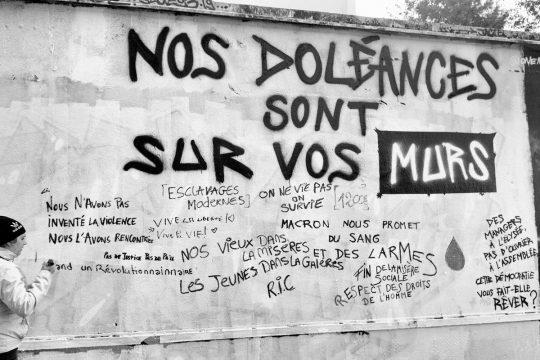 NOS DOLÉANCES
SONT
SUR VOS MURS
"NOUS N'AVONS PAS
INVENTÉ LA VIOLENCE
NOUS L'AVONS RENCONTRÉE
[ESCLAVAGES
MODERNES]
VIVE LA LIBERTÉ
VIVE LA VIE!
PAS DE JUSTICE PAS DE PAIX
and un Révolutionnainnaire
ON NE VIE PAS
ON
SURVIE
[1200€]
MACRON NOUS PROMET
DU SANG
ET DES LARMES
NOS VIEUX DANS
LA MISÈRES
LES JEUNES DANS LA GALÈRES
R.I.C
FIN DE LA MISÈRE
SOCIALE
RESPECT DES DROITS
DE L'HOMME
DES
MANAGERS
À L'ELYSÉE,
PAS D'OUVRIER
À L'ASSEMBLÉE,
CETTE DÉMOCRATIE
VOUS FAIT-ELLE
RÊVER?